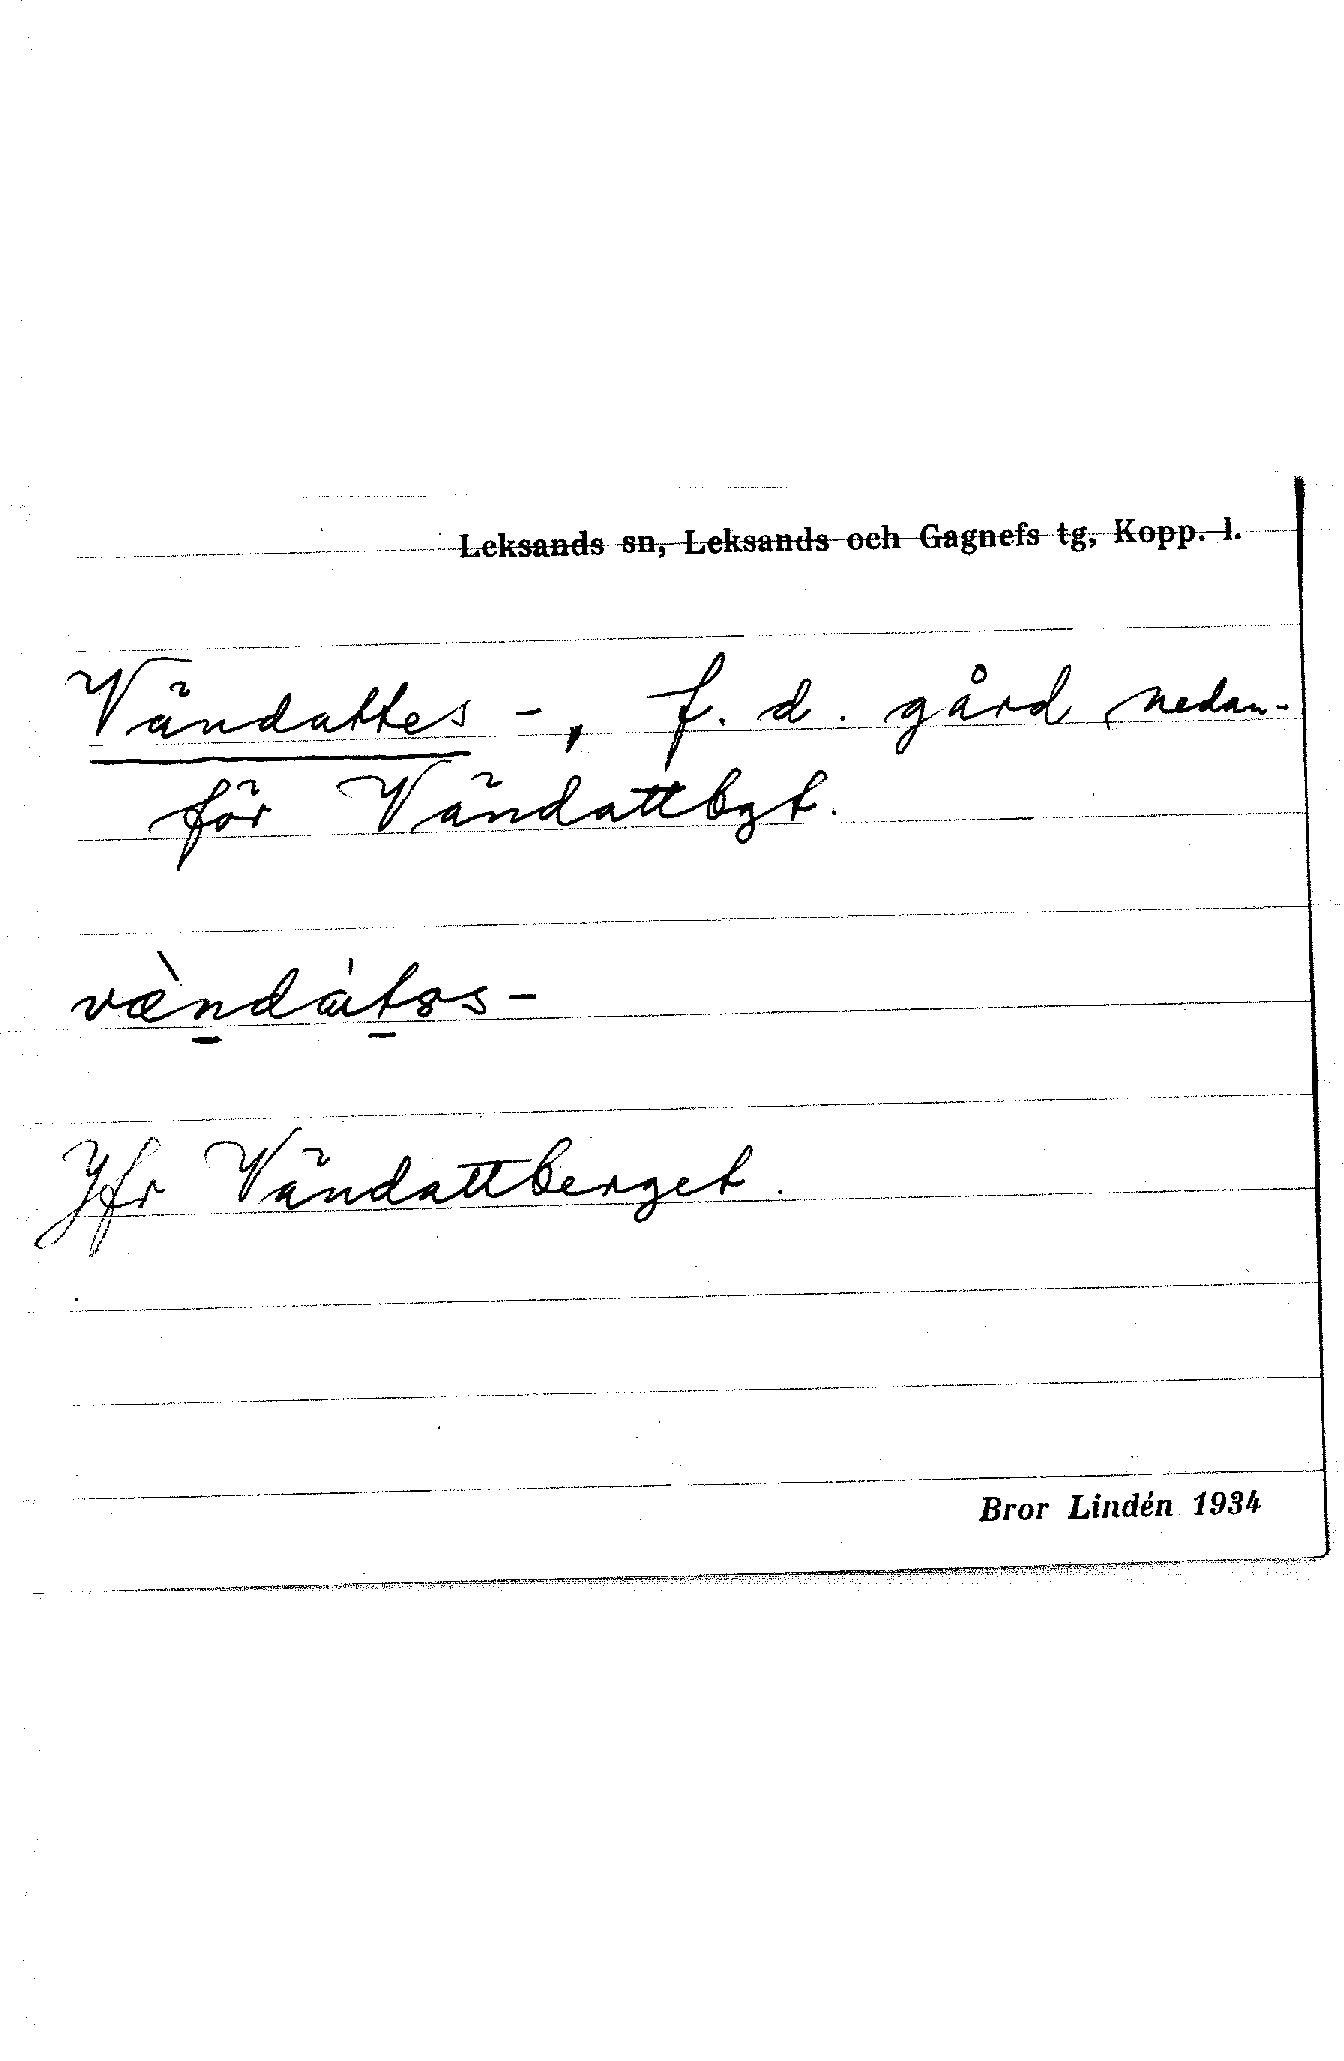 Leksands sn, Leksands och Gagnefs tg, Kopp. l.
Vändattes -, f. d. gård nedan-
för Vändattbgt.
Jfr Vändattberget.
Bror Lindén 1934